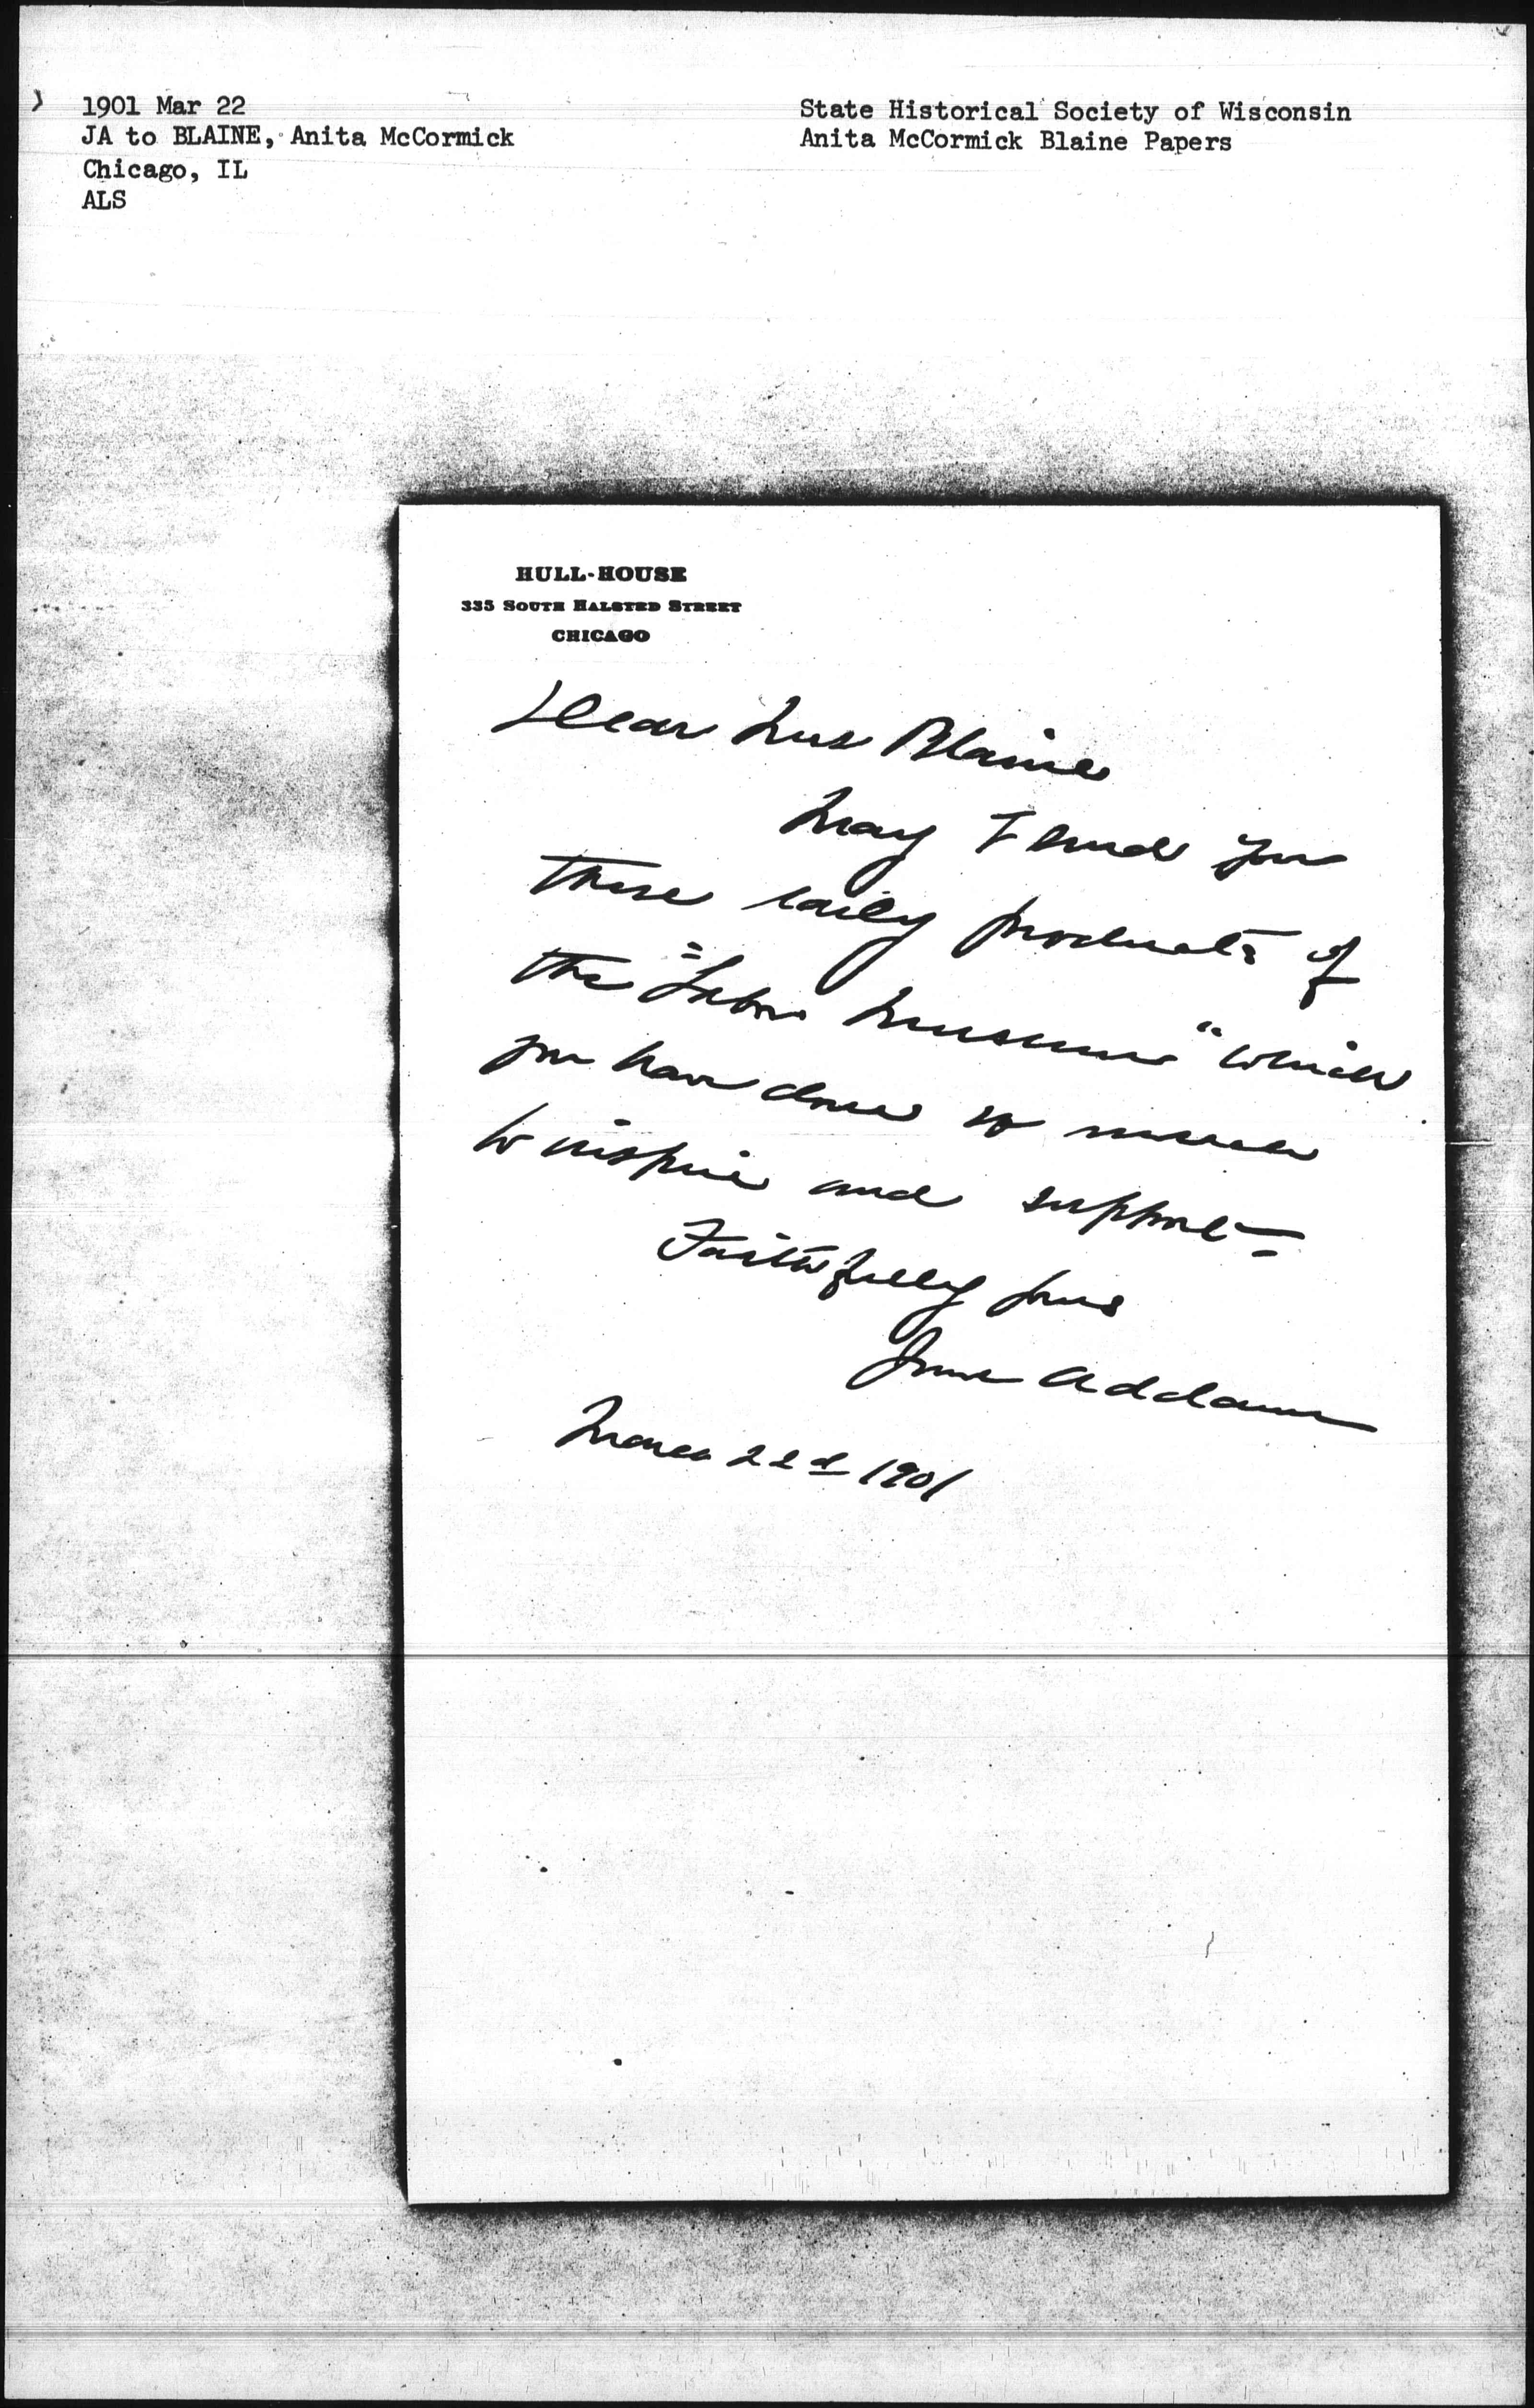 1901 Mar 22
JA to BLAINE, Anita McCormick
Chicago, IL
ALS
State Historical Society of Wisconsin
Anita McCormick Blaine Papers
HULL-HOUSE
335 SOUTH HALSTED STREET
CHICAGO
Dear Mrs Blaine
May I send you
these early products of
the "Labor Museum" which
you have done so much
to inspire and support
Faithfully yours
Jane Addams
March 22d 1901